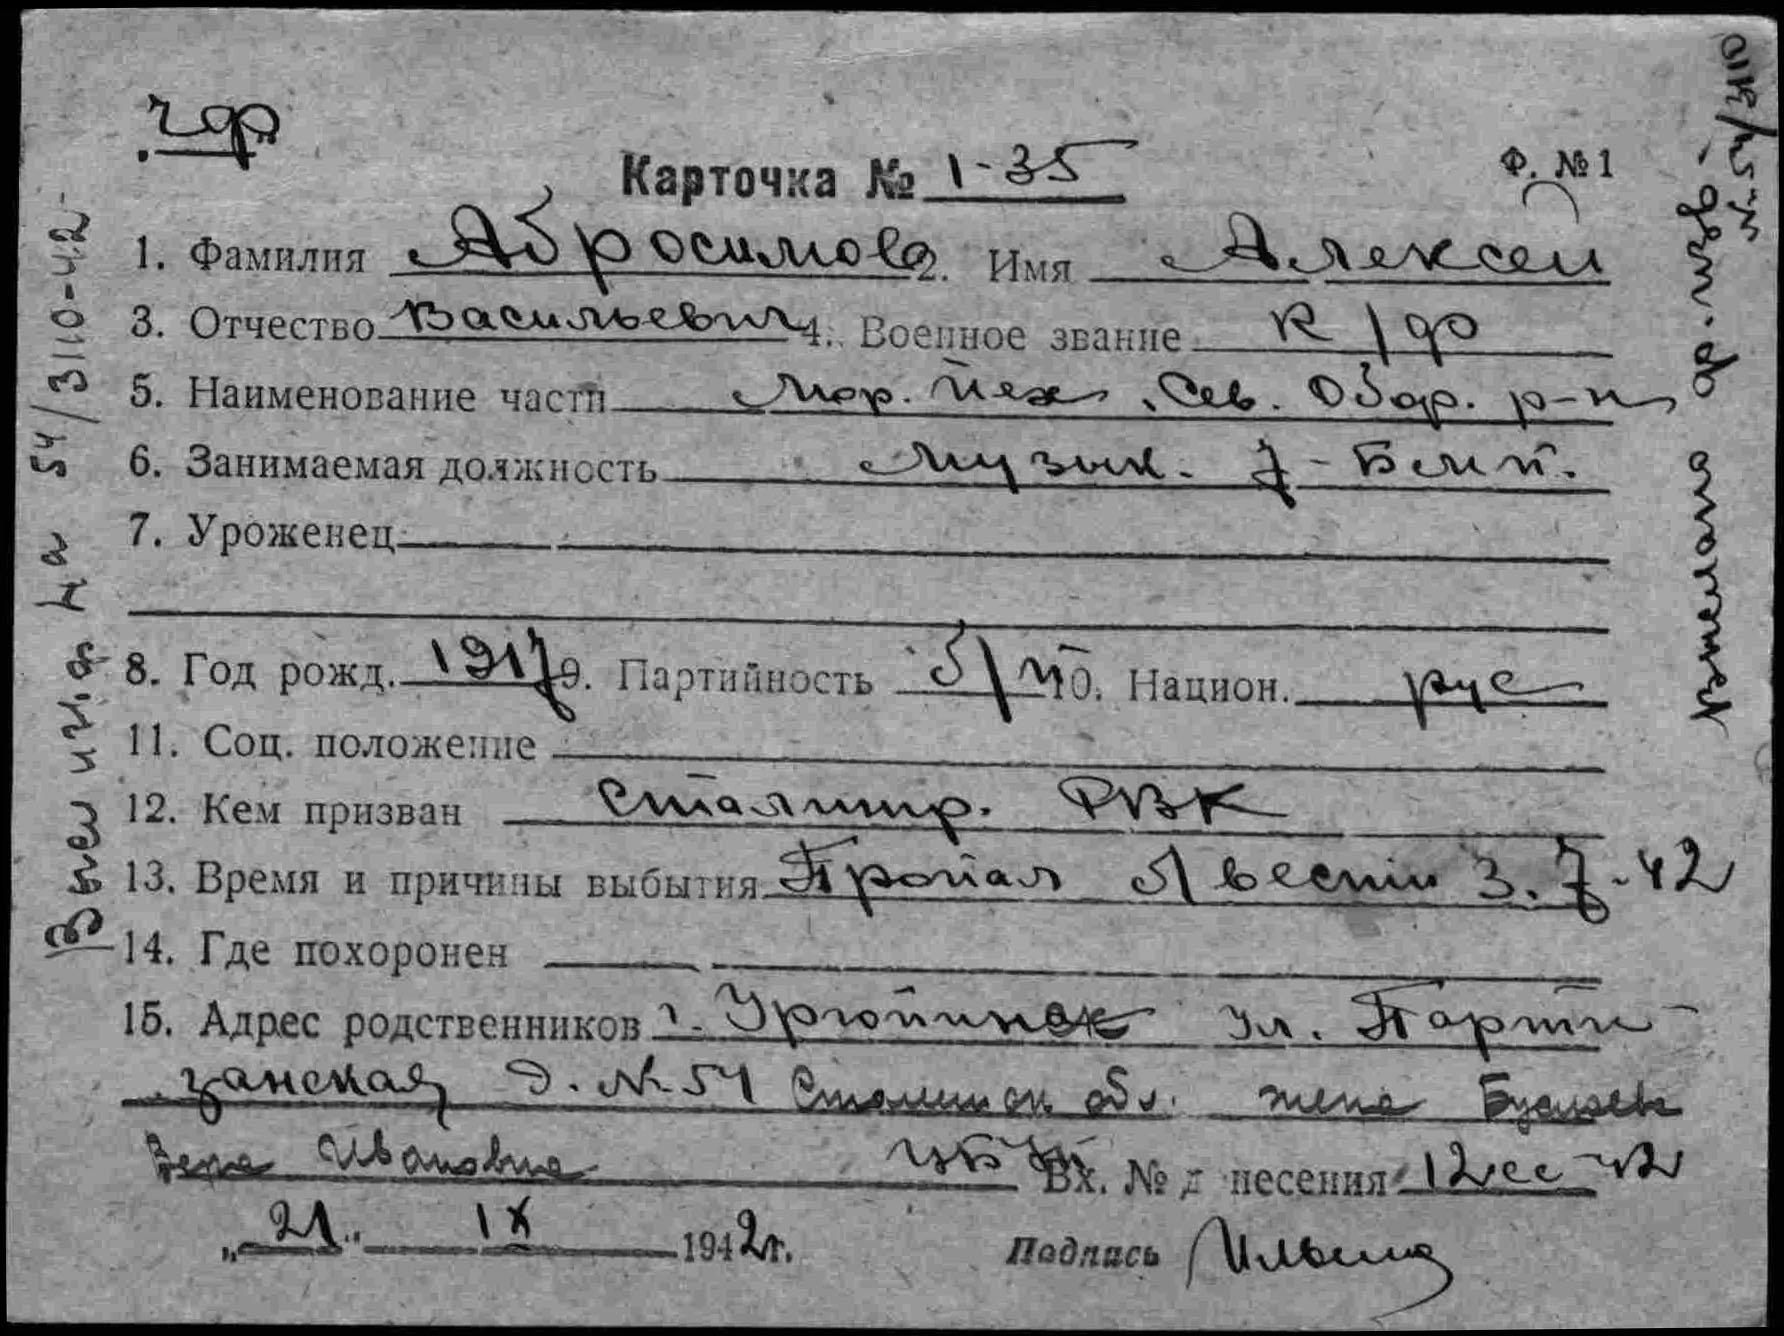 чф
Карточка № 1-35
Ф. № 1
1. Фамилия Абросимов 2. Имя Алексей
3. Отчество Васильевич 4. Военное звание к/ф
5. Наименование части Мор. Пех. Сев. Обор. р-н
6. Занимаемая должность музык. 7-Бмп.
7. Уроженец
8. Год рожд. 1917 9. Партийность б/п 10. Национ. рус
11. Соц. положение
12. Кем призван Сталингр. РВК
13. Время и причины выбытия Пропал б/вести 3.7.-42
14. Где похоронен
15. Адрес родственников г. Урюпинск ул. Парти-
занская д. № 54 обл. жена
Вера Ивановна Вх. № донесения 12сс-42
„21" IX 1942г.
Подпись Ильина
54/3110-42